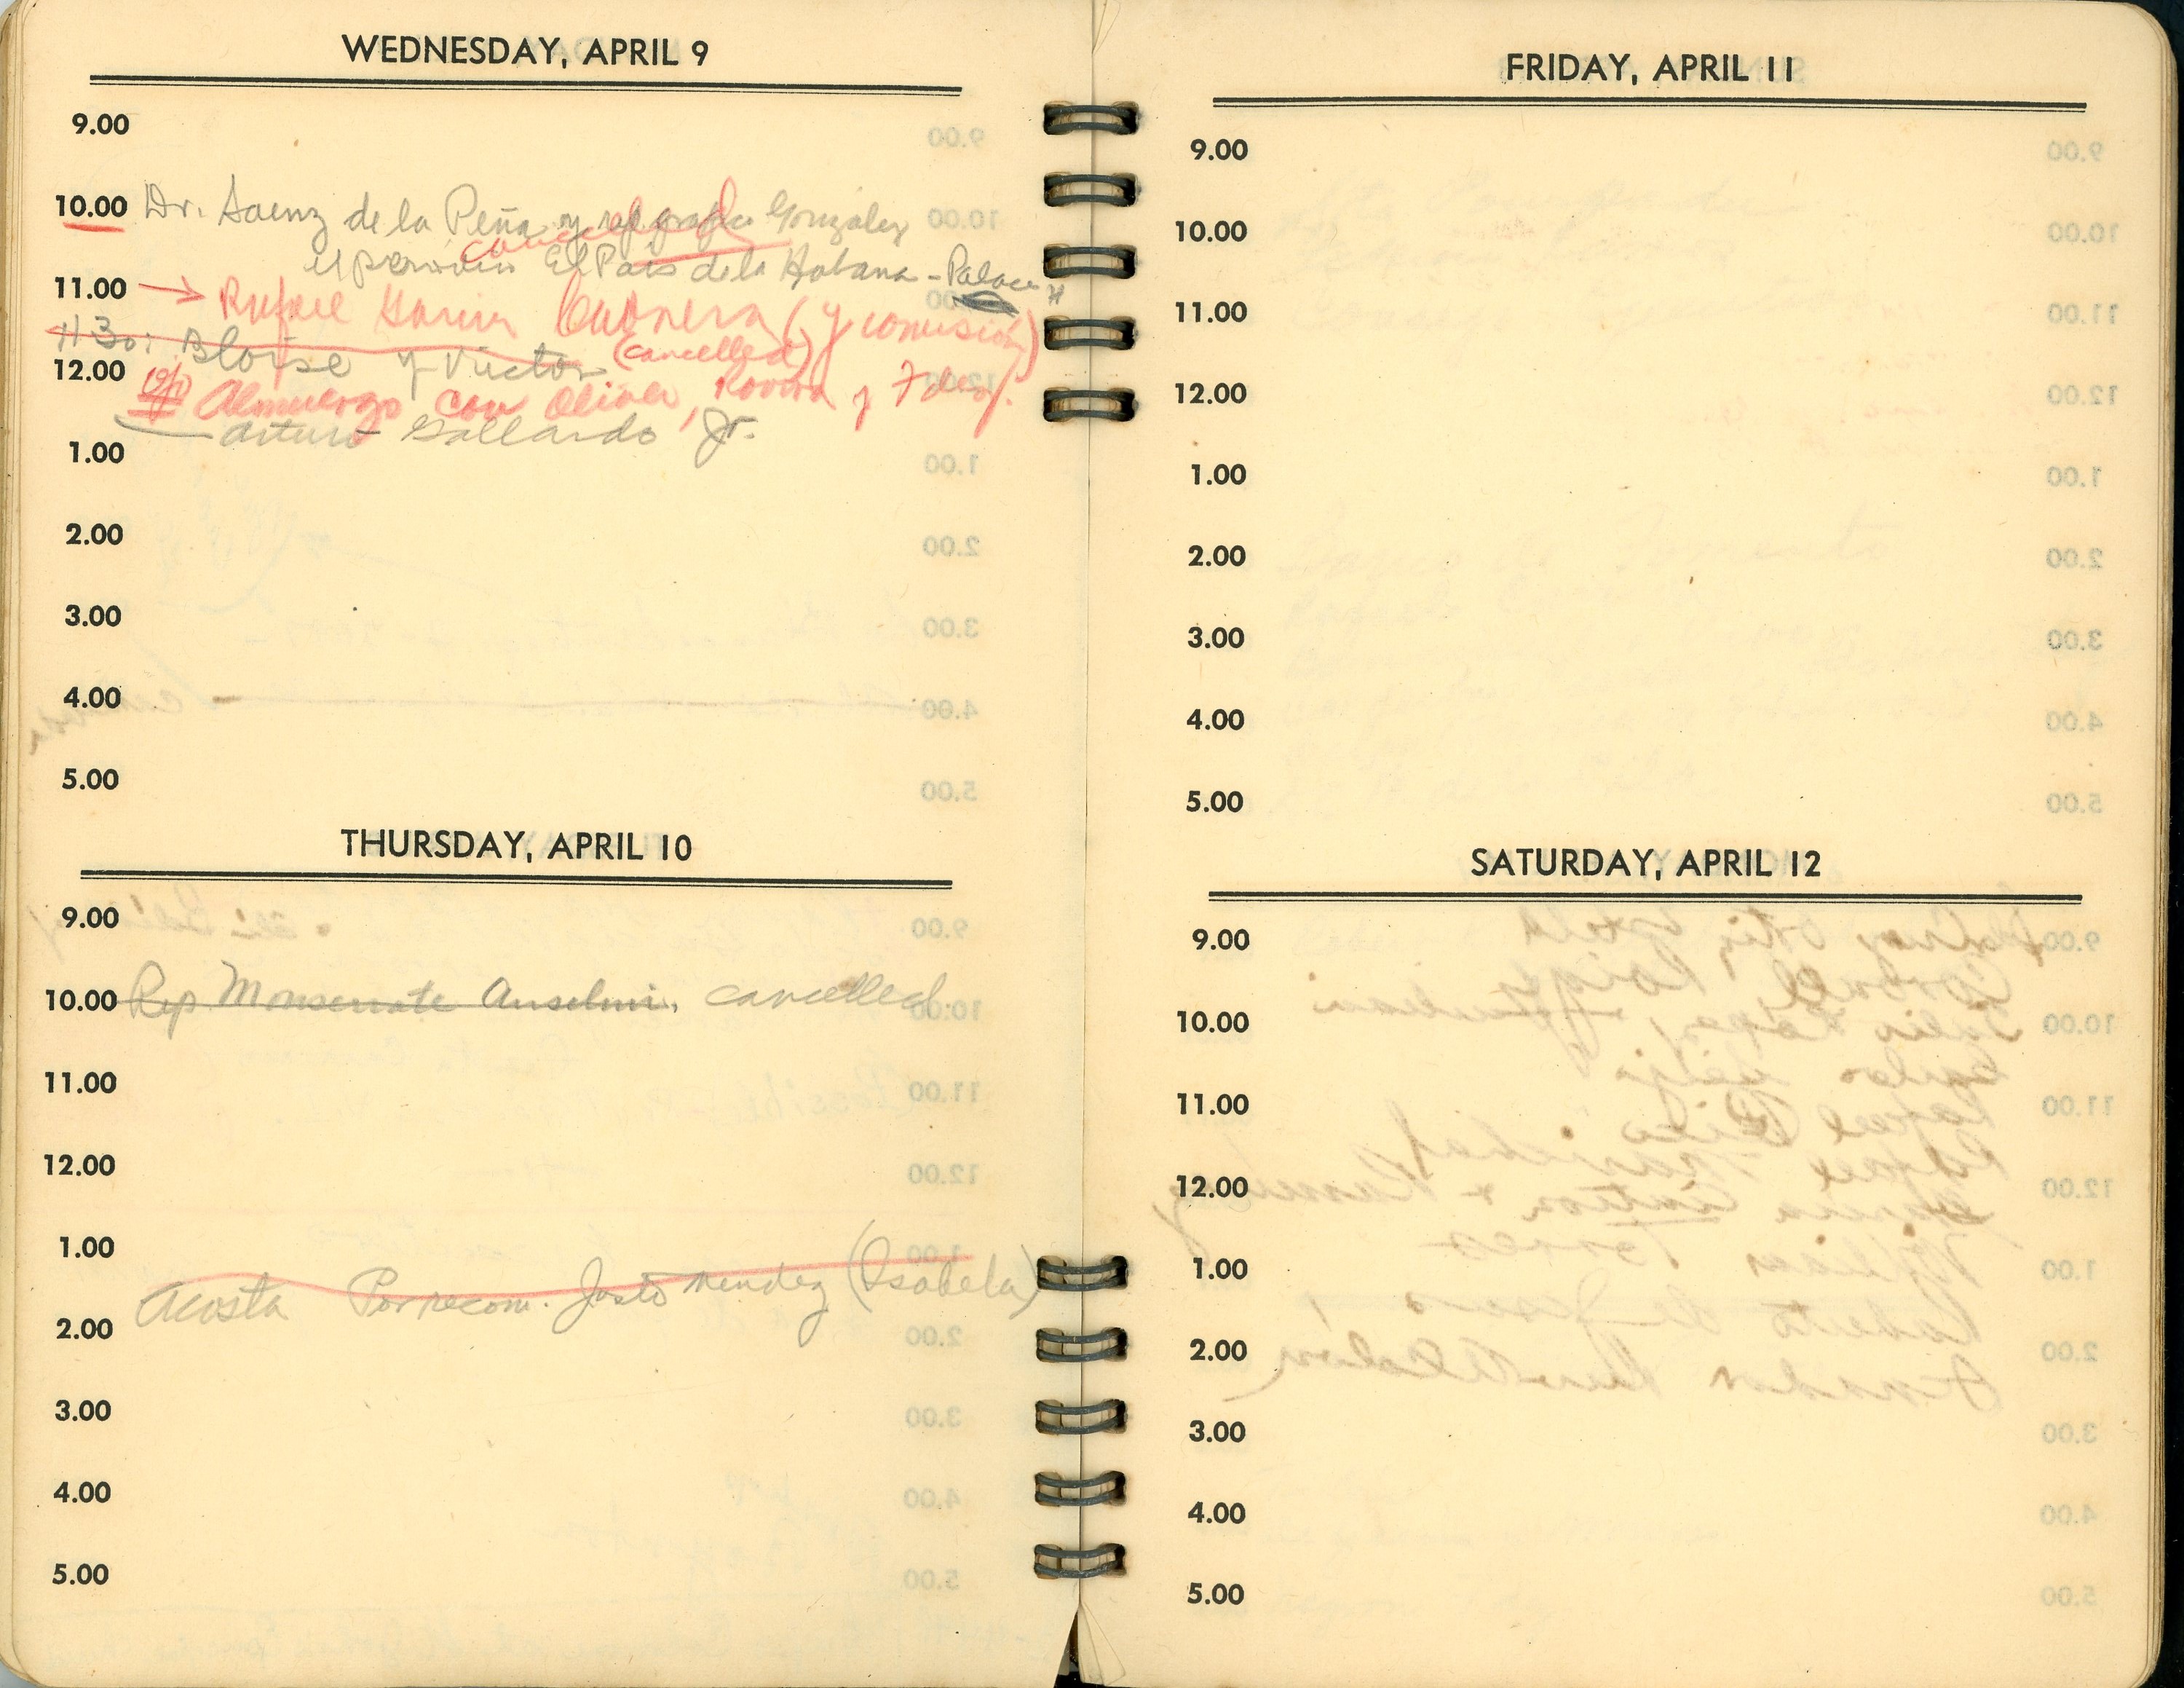 WEDNESDAY, APRIL 9
9.00
10.00 Dr. Saenz de la Peña y Gonzalez
cancelled
El País de la Habana - Palace
11.00 → Rafael (y comisión)
11 30: Bloise y Victor (cancelled)
12.00
Almuerzo con Oliver, y
Arturo Gallardo Jr.
1.00
2.00
3.00
4.00
5.00
THURSDAY, APRIL 10
9.00
10.00 Rep. Monserrate Anselmi, cancelled
11.00
12.00
1.00
Acosta Por recom. Justo Mendez (Isabela)
2.00
3.00
4.00
5.00
FRIDAY, APRIL 11
9.00
10.00
11.00
12.00
1.00
2.00
3.00
4.00
5.00
SATURDAY, APRIL 12
9.00
10.00
11.00
12.00
1.00
2.00
3.00
4.00
5.00